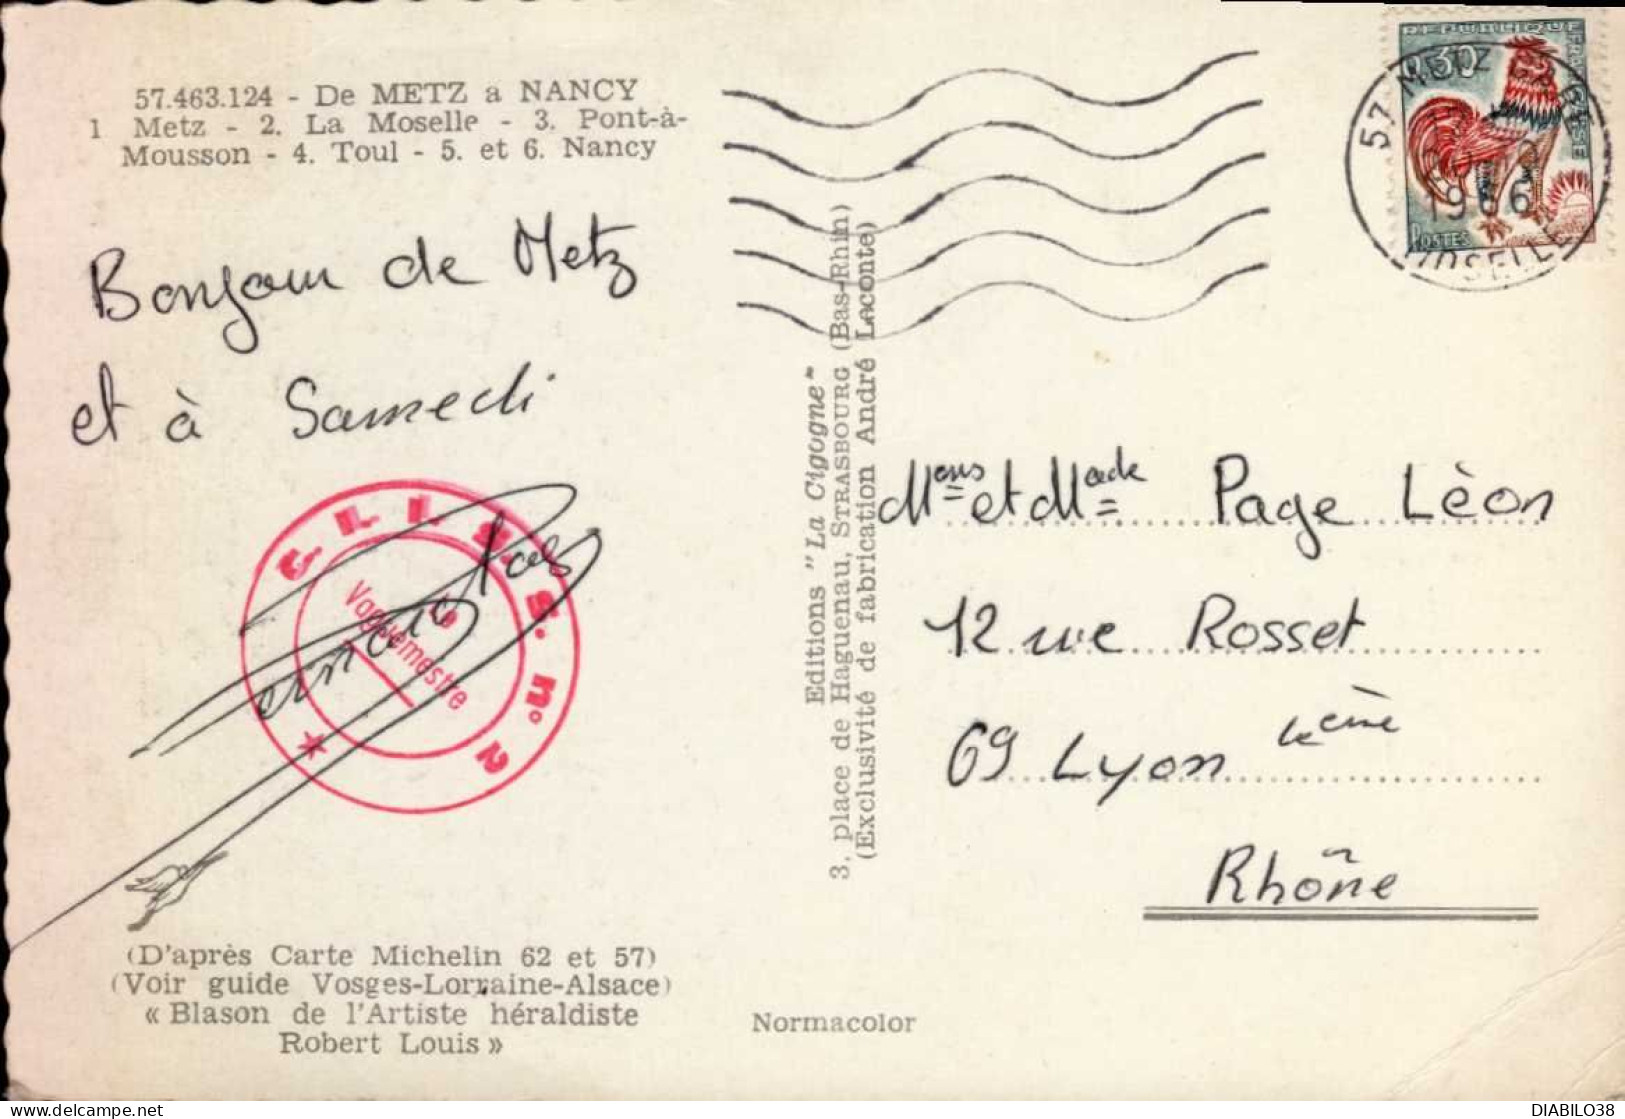 57.463.124 - De METZ a NANCY
1 Metz - 2. La Moselle - 3. Pont-à-
Mousson - 4. Toul - 5. et 6. Nancy
Bonjour de Metz
et à Samedi
C. I. I. S. S. n° 2
Le
Vaguemestre
(D'après Carte Michelin 62 et 57)
(Voir guide Vosges-Lorraine-Alsace)
« Blason de l'Artiste héraldiste
Robert Louis »
Editions "La Cigogne"
3, place de Haguenau, STRASBOURG (Bas-Rhin)
(Exclusivité de fabrication André Leconte)
Normacolor
REPUBLIQUE FRANCAISE
0,30
POSTES
57 METZ GARE
1966
MOSELLE
Mons et Made Page Lèon
12 rue Rosset
69 Lyon 4eme
Rhône
DIABILO38